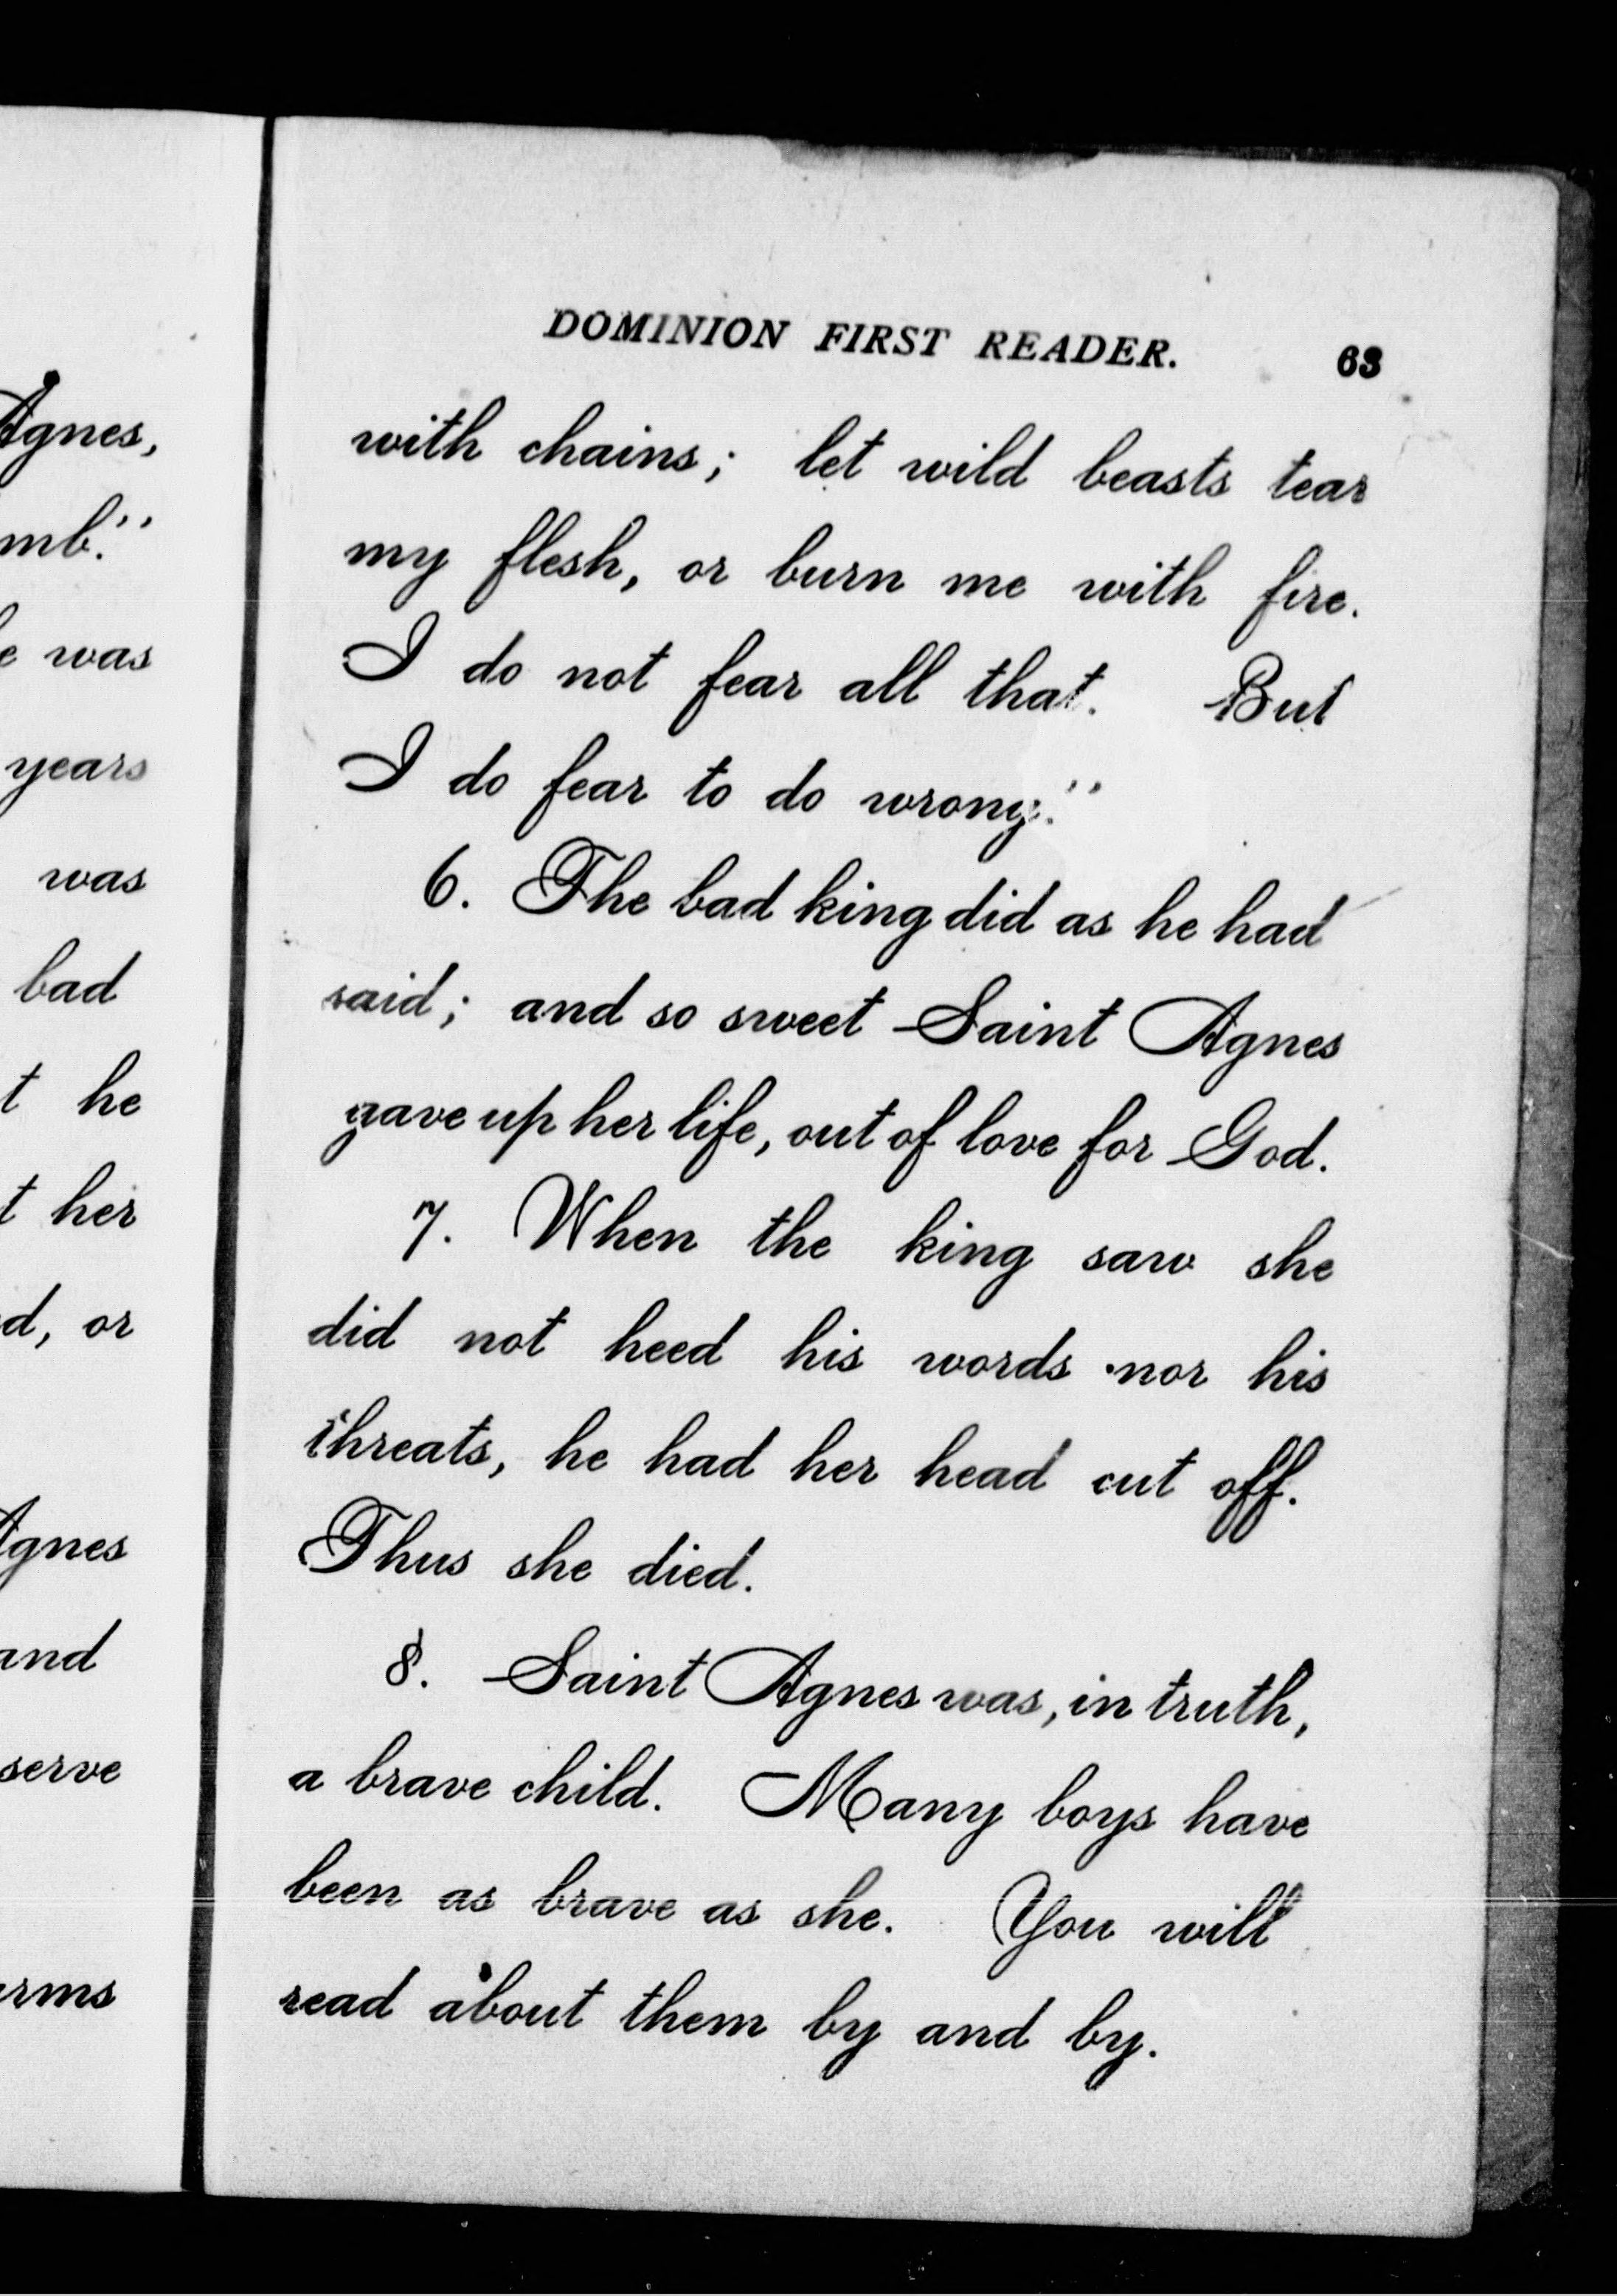 Agnes,
mb."
e was
years
was
bad
t he
t her
d, or
Agnes
and
serve
arms
DOMINION FIRST READER. 63
with chains; let wild beasts tear
my flesh, or burn me with fire.
I do not fear all that. But
I do fear to do wrong."
6. The bad king did as he had
said; and so sweet Saint Agnes
gave up her life, out of love for God.
7. When the king saw she
did not heed his words nor his
threats, he had her head cut off.
Thus she died.
8. Saint Agnes was, in truth,
a brave child. Many boys have
been as brave as she. You will
read about them by and by.